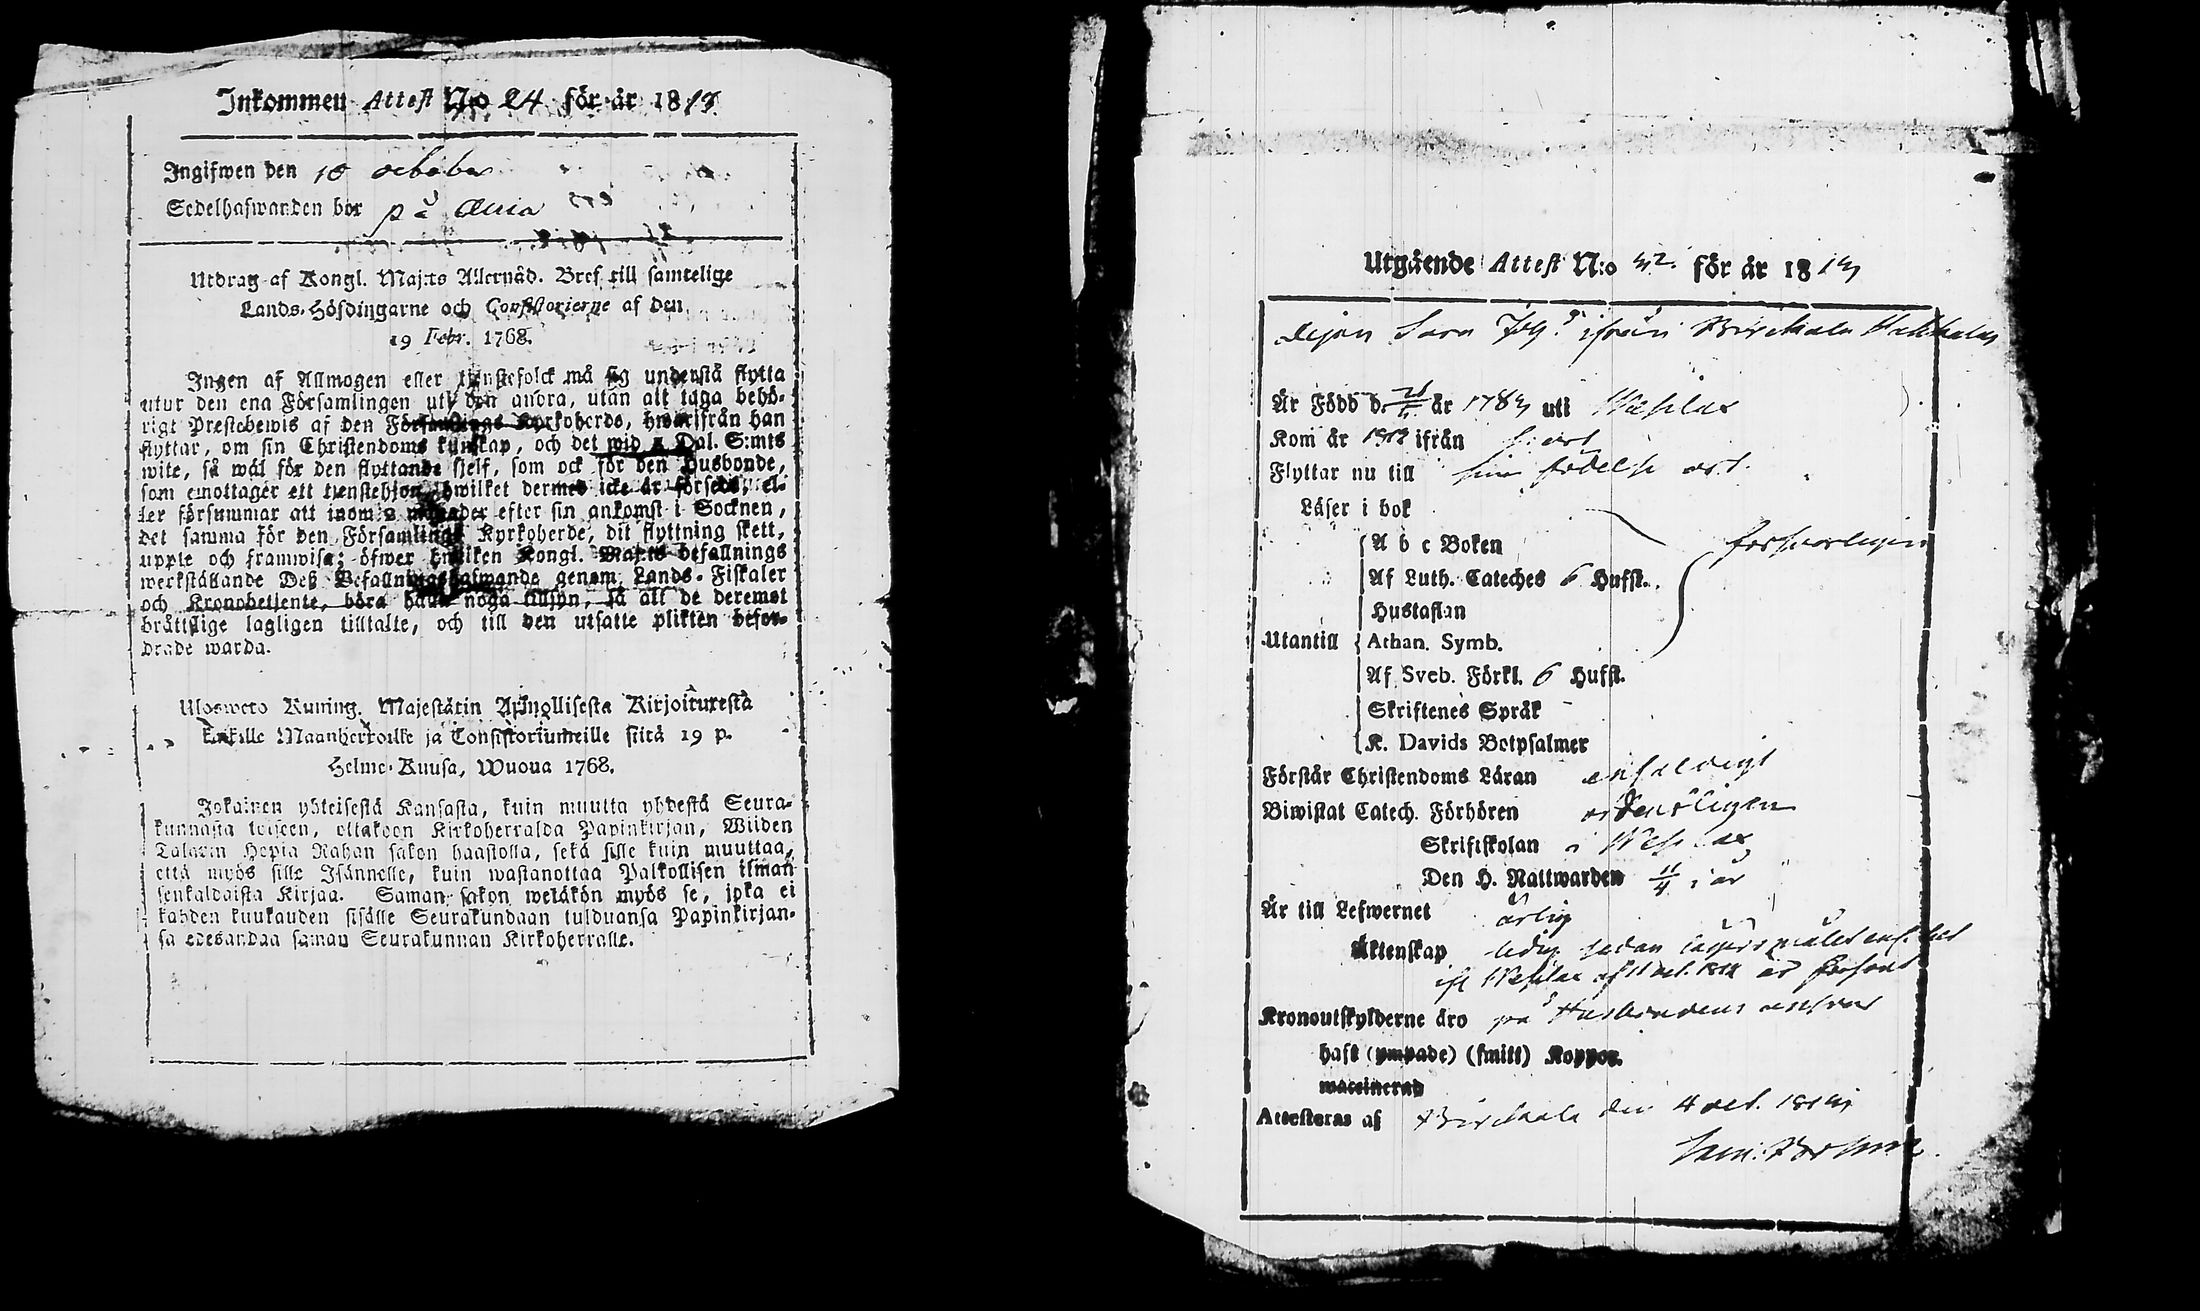 Inkommen Attest N:o 24 för år 1813
Ingifwen den 10 october
Sedelhafwanden bor på Ania
Utdrag af Kongl. Maj:ts Allernåd. Bref till samtelige
Lands-Höfdingarne och Consistorierne af den
19 Febr. 1768.
Ingen af Allmogen eller tjenstefolck må sig understå flytta
utur den ena Församlingen uti den andra, utan att taga behö-
rigt Prestebewis af den Församlings Kyrkoherde, hwarifrån han
flyttar, om sin Christendoms kunskap, och det wid 5 Dal. S:mts
wite, så wäl för den flyttande sjelf, som ock för den Husbonde,
som emottager ett tjenstehjon, hwilket dermed icke är försedt, el-
ler försummar att inom 2 månader efter sin ankomst i Socknen,
det samma för den Församlings Kyrkoherde, dit flyttning skett,
upple och framwisa; öfwer hwilken Kongl. Maj:ts befallnings
werkställande Deß Befallningshafwande genom Lands-Fiskaler
och Kronobetjente, böra hafa noga tillsyn, så att de deremot
bråttslige lagligen tilltalte, och till den utsatte plikten befor-
drade warda.
Uloswето Kuning. Majestätin Armollisesta Kirjoituxesta
kaikille Maanherroille ja Consistoriumeille siitä 19 p.
Helme-Kuusa, Wuoua 1768.
Jokainen yhteisestä Kansasta, kuin muutta yhdestä Seura-
kunnasta toiseen, ottakoon Kirkoherralda Papinkirjan, Wiiden
Talarin Hopia Rahan sakon haastolla, sekä sille kuin muuttaa,
että myös sille Isännelle, kuin wastanottaa Palkollisen ilman
senkaldaista Kirjaa. Saman sakon wetäkön myös se, joka ei
kahden kuukauden sisälle Seurakundaan tulduansa Papinkirjan-
sa edesandaa saman Seurakunnan Kirkoherralle.
Utgående Attest N:o 42. för år 1813
Pejan Sara Joh:s ifrån Birckala
Är Född d. år 1783 uti Wesilax
Kom år ifrån
Flyttar nu till sin födelse ort.
Läser i bok
Utantill
A b c Boken
Af Luth. Cateches 6 Hufst.
Hustaflan
Athan. Symb.
Af Sveb. Förkl. 6 Hufst.
Skriftenes Språk
K. Davids Botpsalmer
försvarligen
Förstår Christendoms Läran enfaldigt
Biwistat Catech. Förhören ordentligen
Skriftskolan i Wesilax
Den H. Nattwarden 11/4 i år
Är till Lefwernet ärlig
Äktenskap ledig sedan
Wesilax är
Kronoutskylderne äro på Husbondens answar
haft (ympade) (smitt) Koppor.
waccinerad
Attesteras af Birckala den 4 oct. 1813